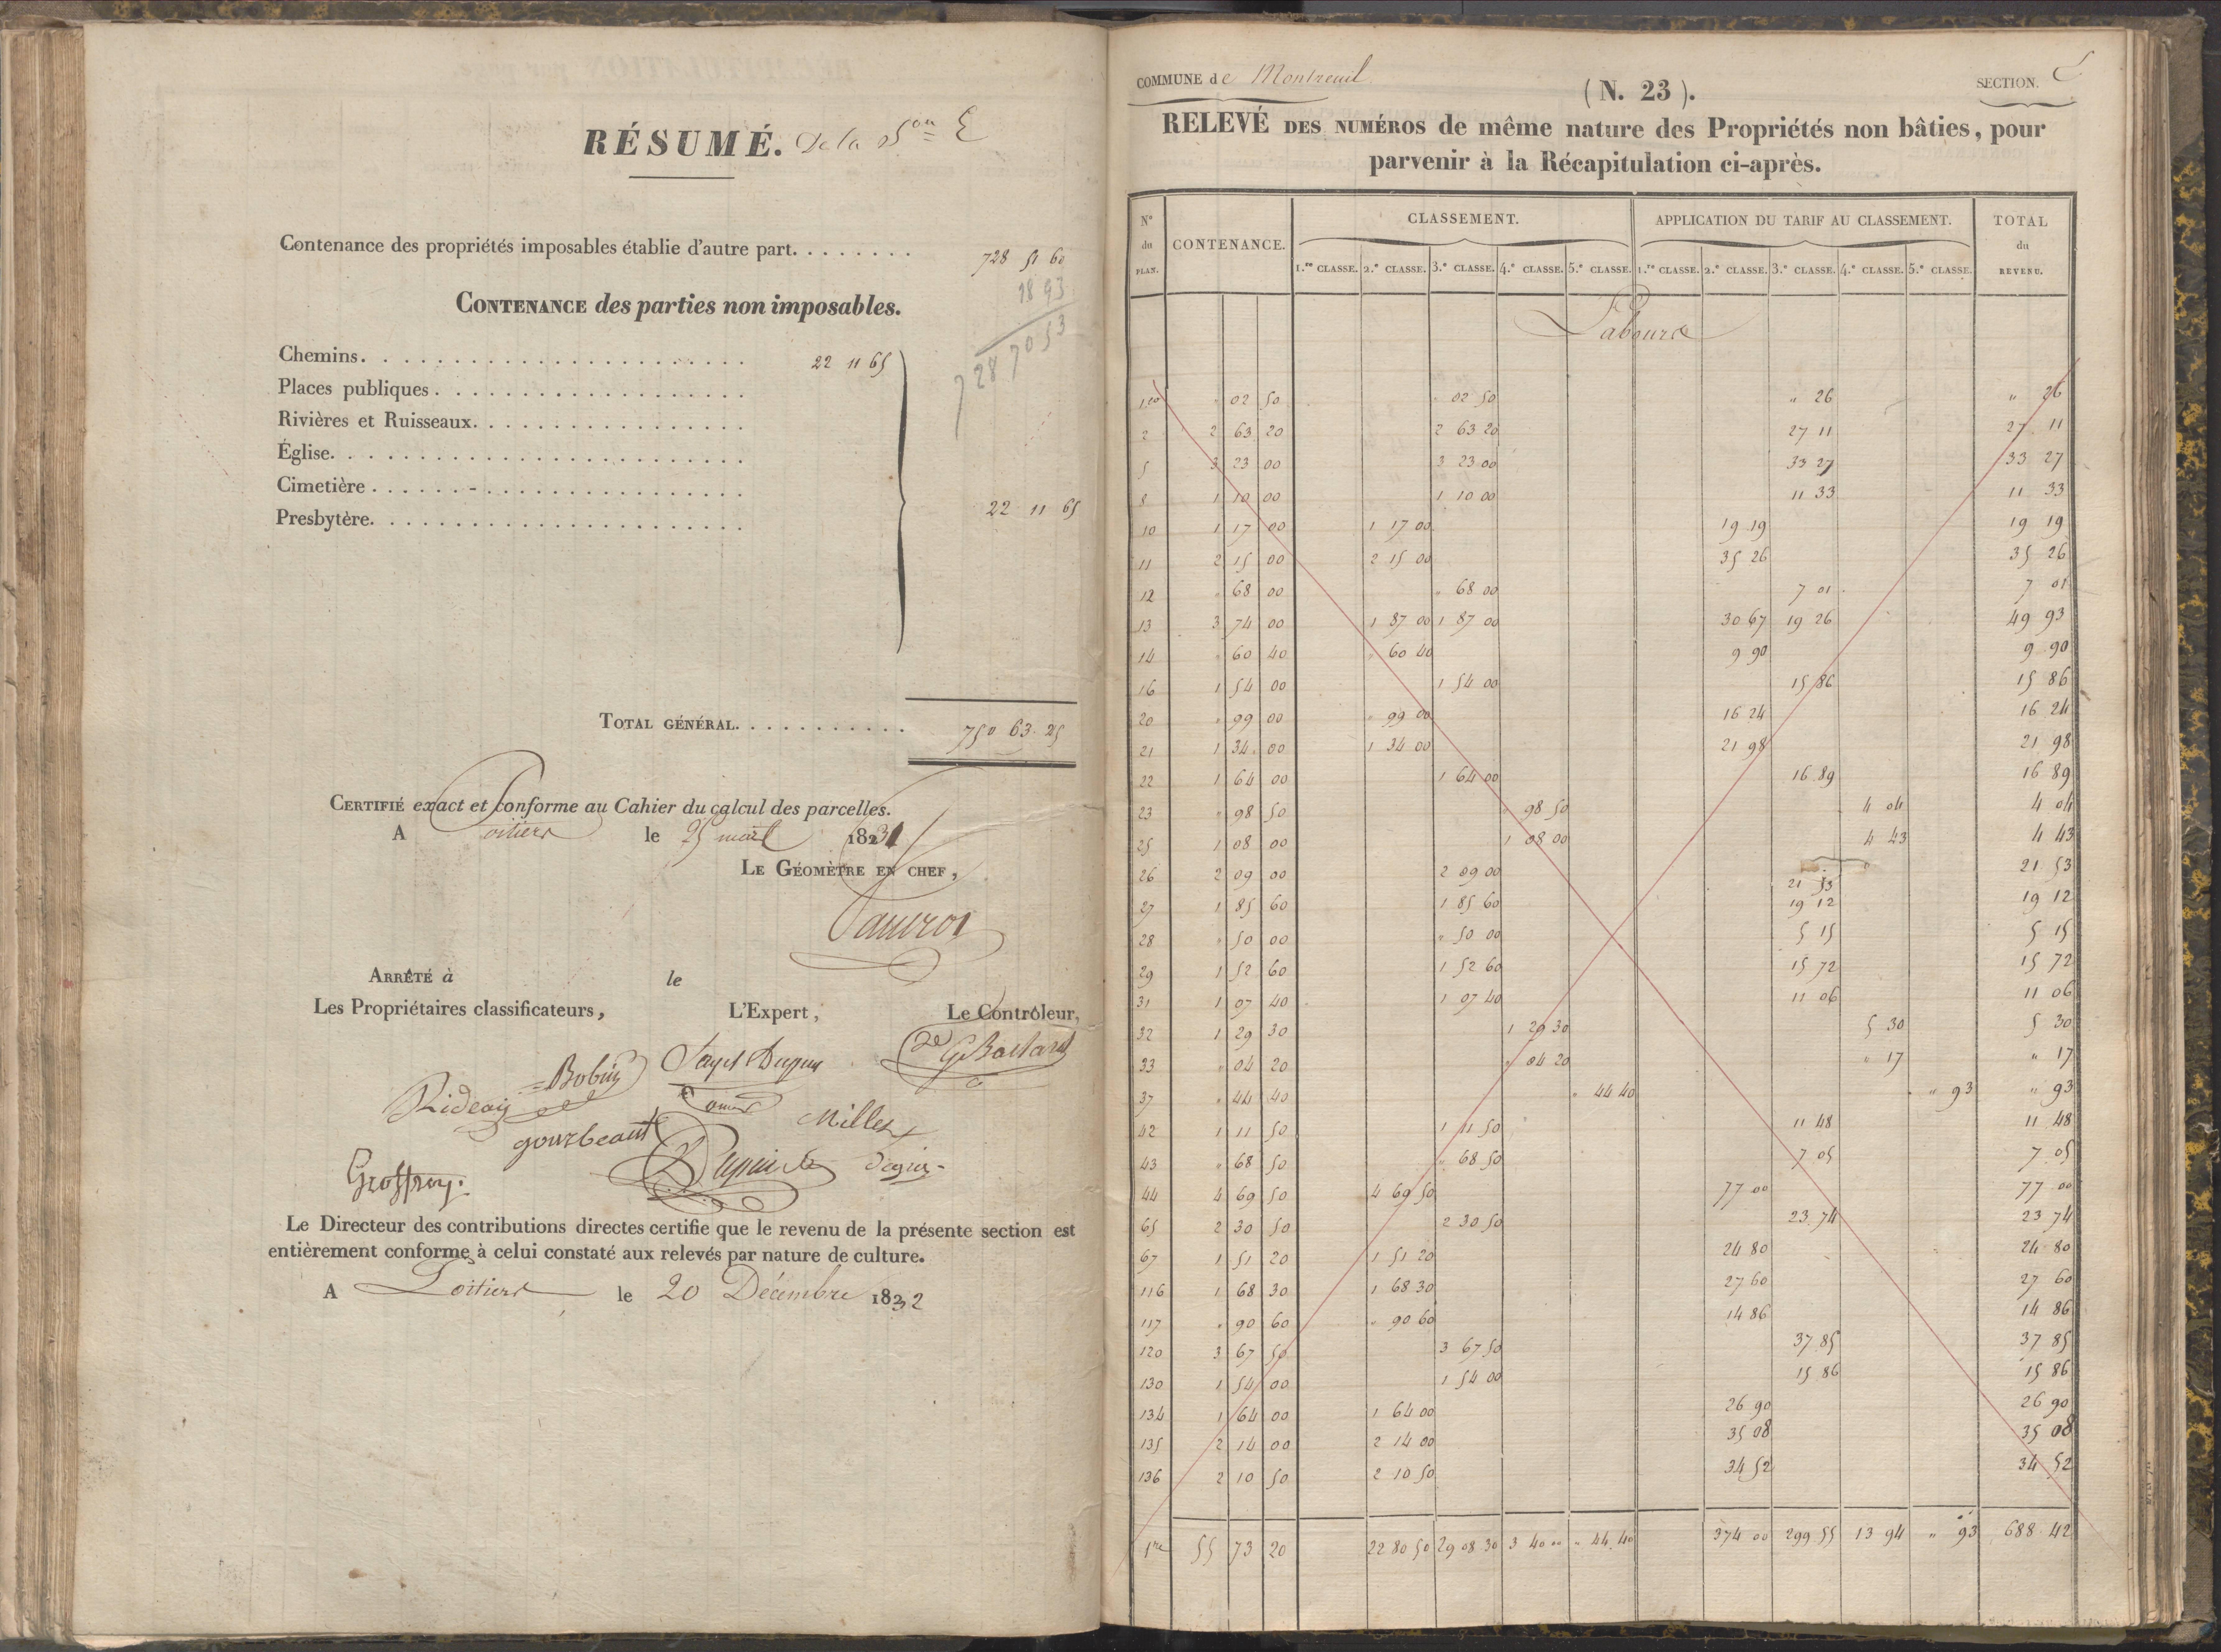 RÉSUMÉ. De la Son E
Contenance des propriétés imposables établie d'autre part. . . . . . . . 728 51 60
18 93
728 70 53
CONTENANCE des parties non imposables.
Chemins. 22 11 65
Places publiques.
Rivières et Ruisseaux.
Église.
Cimetière.
Presbytère.
22 11 65
TOTAL GÉNÉRAL. 750 63 25
CERTIFIÉ exact et conforme au Cahier du calcul des parcelles.
A Poitiers le 25 mai 1831
LE GÉOMÈTRE EN CHEF,
ARRÊTÉ à le
Les Propriétaires classificateurs, L'Expert, Le Contrôleur,
Bobin
Rideau
gourbeault Millet
Geoffroy.
Le Directeur des contributions directes certifie que le revenu de la présente section est
entièrement conforme à celui constaté aux relevés par nature de culture.
A Poitiers le 20 Décembre 1832
COMMUNE de Montreuil. (N. 23). SECTION.
RELEVÉ DES NUMÉROS de même nature des Propriétés non bâties, pour
parvenir à la Récapitulation ci-après.
Nos du PLAN. CONTENANCE. CLASSEMENT. APPLICATION DU TARIF AU CLASSEMENT. TOTAL du REVENU.
1.re CLASSE. 2.e CLASSE. 3.e CLASSE. 4.e CLASSE. 5.e CLASSE. 1.re CLASSE. 2.e CLASSE. 3.e CLASSE. 4.e CLASSE. 5.e CLASSE.
Labours
" 02 50 " 02 50 " 26 " 26
2 2 63 20 2 63 20 27 11 27 11
5 3 23 00 3 23 00 33 27 33 27
8 1 10 00 1 10 00 11 33 11 33
10 1 17 00 1 17 00 19 19 19 19
11 2 15 00 2 15 00 35 26 35 26
12 " 68 00 " 68 00 7 01 7 01
13 3 74 00 1 87 00 1 87 00 30 67 19 26 49 93
14 " 60 40 " 60 40 9 90 9 90
16 1 54 00 1 54 00 15 86 15 86
20 " 99 00 " 99 00 16 24 16 24
21 1 34 00 1 34 00 21 98 21 98
22 1 64 00 1 64 00 16 89 16 89
23 " 98 50 " 98 50 4 04 4 04
25 1 08 00 1 08 00 4 43 4 43
26 2 09 00 2 09 00 21 53 21 53
27 1 85 60 1 85 60 19 12 19 12
28 " 50 00 " 50 00 5 15 5 15
29 1 52 60 1 52 60 15 72 15 72
31 1 07 40 1 07 40 11 06 11 06
32 1 29 30 1 29 30 5 30 5 30
33 " 04 20 " 04 20 " 17 " 17
37 " 44 40 " 44 40 " 93 " 93
42 1 11 50 1 11 50 11 48 11 48
43 " 68 50 " 68 50 7 05 7 05
44 4 69 50 4 69 50 77 00 77 00
65 2 30 50 2 30 50 23 74 23 74
67 1 51 20 1 51 20 24 80 24 80
116 1 68 30 1 68 30 27 60 27 60
117 " 90 60 " 90 60 14 86 14 86
120 3 67 50 3 67 50 37 85 37 85
130 1 54 00 1 54 00 15 86 15 86
134 1 64 00 1 64 00 26 90 26 90
135 2 14 00 2 14 00 35 08 35 08
136 2 10 50 2 10 50 34 52 34 52
1re 55 73 20 22 80 50 29 08 30 3 40 00 " 44 40 374 00 299 55 13 94 " 93 688 42